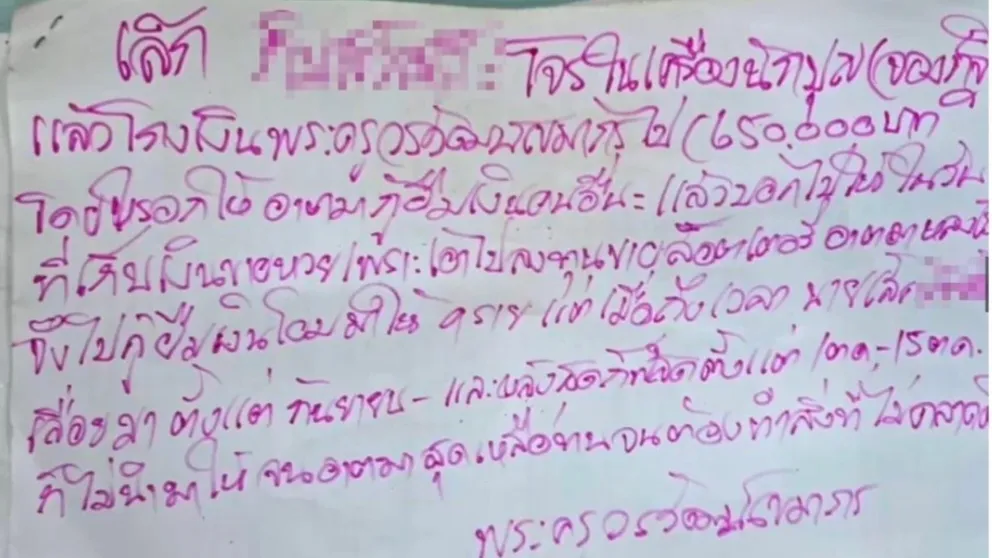 เสก โจรในเครื่องนักบุญ (จองกฐิ
แล้วโกงเงินพระครูวรวัฒน ไป (650.000บาท
โดยหรอกให้ อาตมากู้ยืมเงินคนอื่นะ แล้วบอกไปให้ ในวัน
ที่เก็บเงินขายหวย เพราะเอาไปลงทุนขายล๊อตเตอรี่ อาตมาหลง
จึงไปกู้ยืมเงินโอนมาให้ แต่เมื่อถึงเวลา นายเสก
เลื่อยมา ตั้งแต่ กันยายน - และหลังสุด ตั้งแต่ 1ตค - 15ตค.
ก็ไม่นำมาให้ จนอาตมาสุดเหลือทน จนต้องทำสิ่งที่ ไม่คลาด
พระครูวรวัฒน